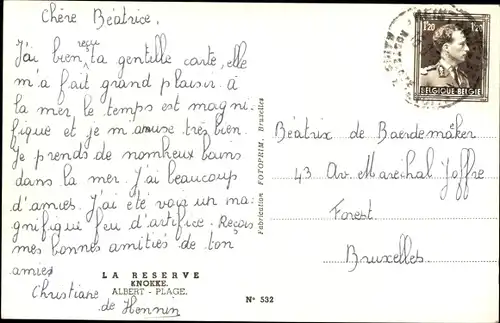 Chère Béatrice,
J'ai bien reçu ta gentille carte, elle
m'a fait grand plaisir. à
la mer le temps est magni-
fique et je m'amuse très bien.
Je prends de nombeux bains
dans la mer. J'ai beaucoup
d'amies. J'ai été voir un ma-
gnifiqui feu d'artifice. Reçois
mes bonnes amitiés de ton
amies
Christiane
de Hennin
LA RESERVE
KNOKKE.
ALBERT - PLAGE.
Nº 532
Fabrication FOTOPRIM, Bruxelles
1F20 1F20
BELGIQUE-BELGIE
Béatrix de Baerdemaeker
43 Av. Maréchal Joffre
Forest
Bruxelles